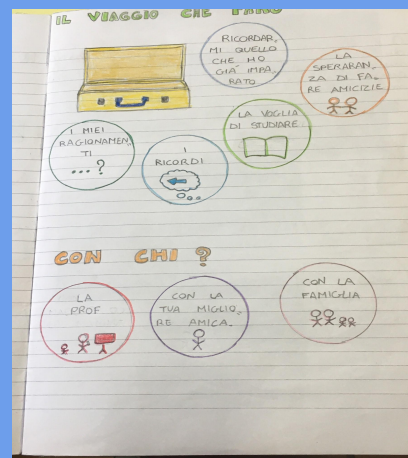 IL VIAGGIO CHE FARÒ
RICORDAR,
MI QUELLO
CHE HO
GIÀ IMPA,
RATO
LA
SPERABAN,
ZA DI FA,
RE AMICIZIE
LA VOGLIA
DI STUDIARE
I MIEI
RAGIONAMEN,
TI
... ?
I
RICORDI
CON CHI ?
LA
PROF
CON LA
TUA MIGLIO,
RE AMICA.
CON LA
FAMIGLIA